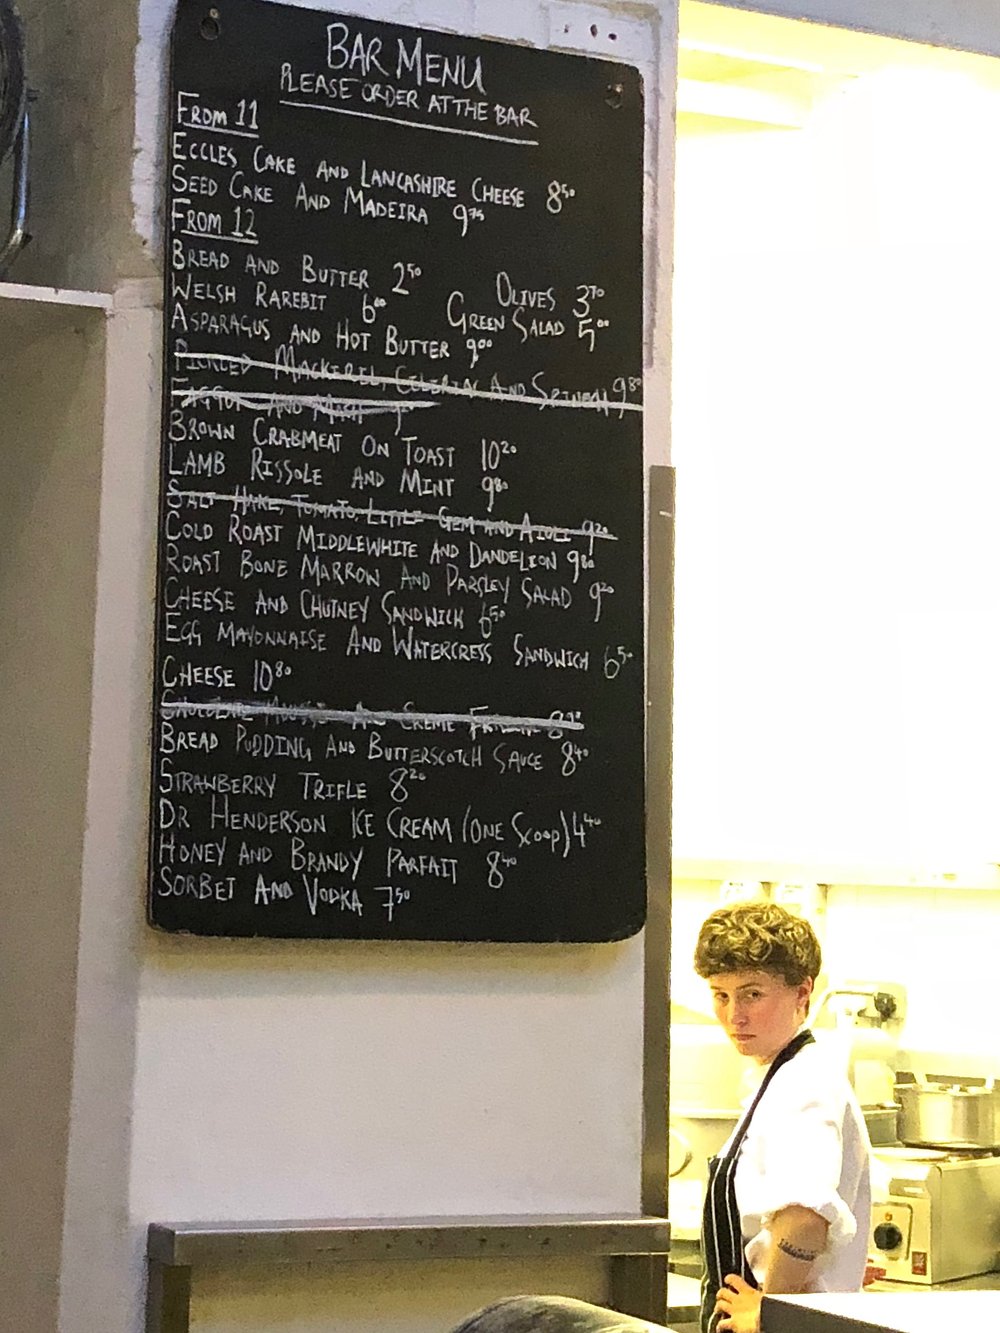 BAR MENU
PLEASE ORDER AT THE BAR
FROM 11
ECCLES CAKE AND LANCASHIRE CHEESE 8 50
SEED CAKE AND MADEIRA 9 75
FROM 12
BREAD AND BUTTER 2 50 OLIVES 3 70
WELSH RAREBIT 6 00 GREEN SALAD 5 00
ASPARAGUS AND HOT BUTTER 9 00
PICKLED MACKEREL, CELERIAC AND 9 80
FAGGOT AND MASH
BROWN CRABMEAT ON TOAST 10 20
LAMB RISSOLE AND MINT 9 80
SALT HAKE, TOMATO, LITTLE GEM AND AIOLI 9 20
COLD ROAST MIDDLEWHITE AND DANDELION 9 80
ROAST BONE MARROW AND PARSLEY SALAD 9 20
CHEESE AND CHUTNEY SANDWICH 6 50
EGG MAYONNAISE AND WATERCRESS SANDWICH 6 50
CHEESE 10 80
CHOCOLATE MOUSSE AND CREME
BREAD PUDDING AND BUTTERSCOTCH SAUCE 8 40
STRAWBERRY TRIFLE 8 20
DR HENDERSON ICE CREAM (ONE SCOOP) 4 40
HONEY AND BRANDY PARFAIT 8 40
SORBET AND VODKA 7 50